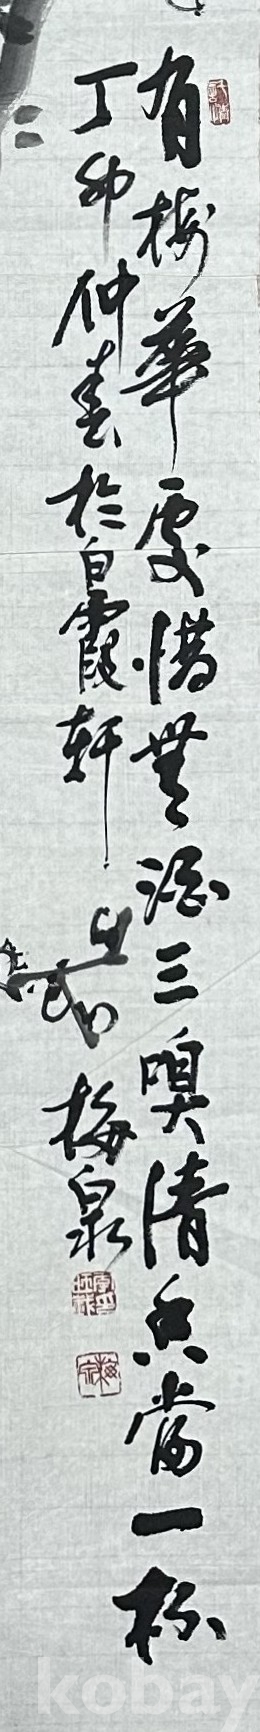 有梅華處惜無酒三嗅淸香當一杯
丁卯仲春於白霞軒 梅泉
kobay